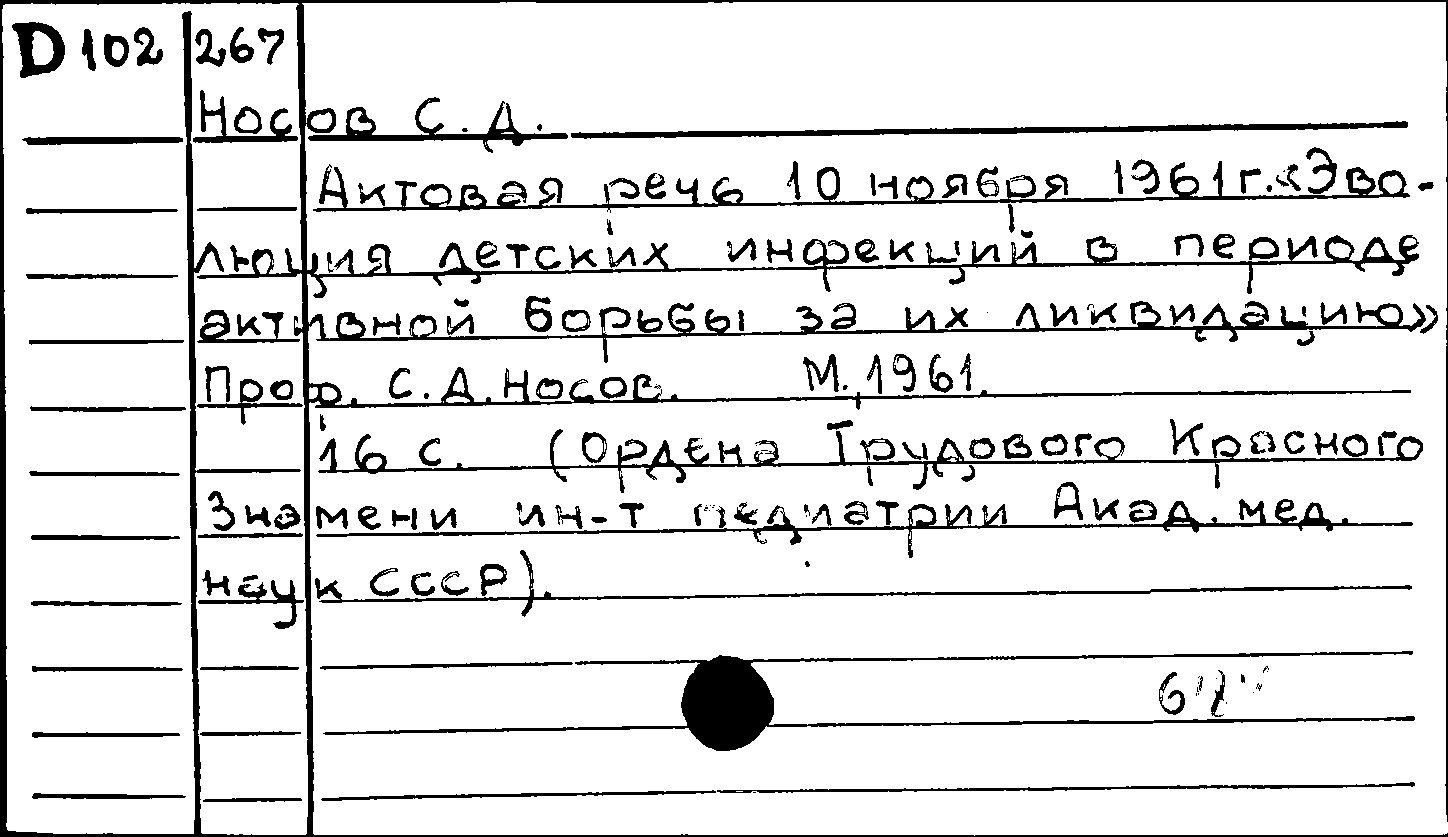 D 102 267
Носов С.Д.
Актовая речь 10 ноября 1961г. «Эво-
люция детских инфекций в периоде
активной борьбы за их ликвидацию»
Проф. С.Д. Носов. М., 1961.
16 с. (Ордена Трудового Красного
Знамени ин-т педиатрии Акад. мед.
наук СССР).